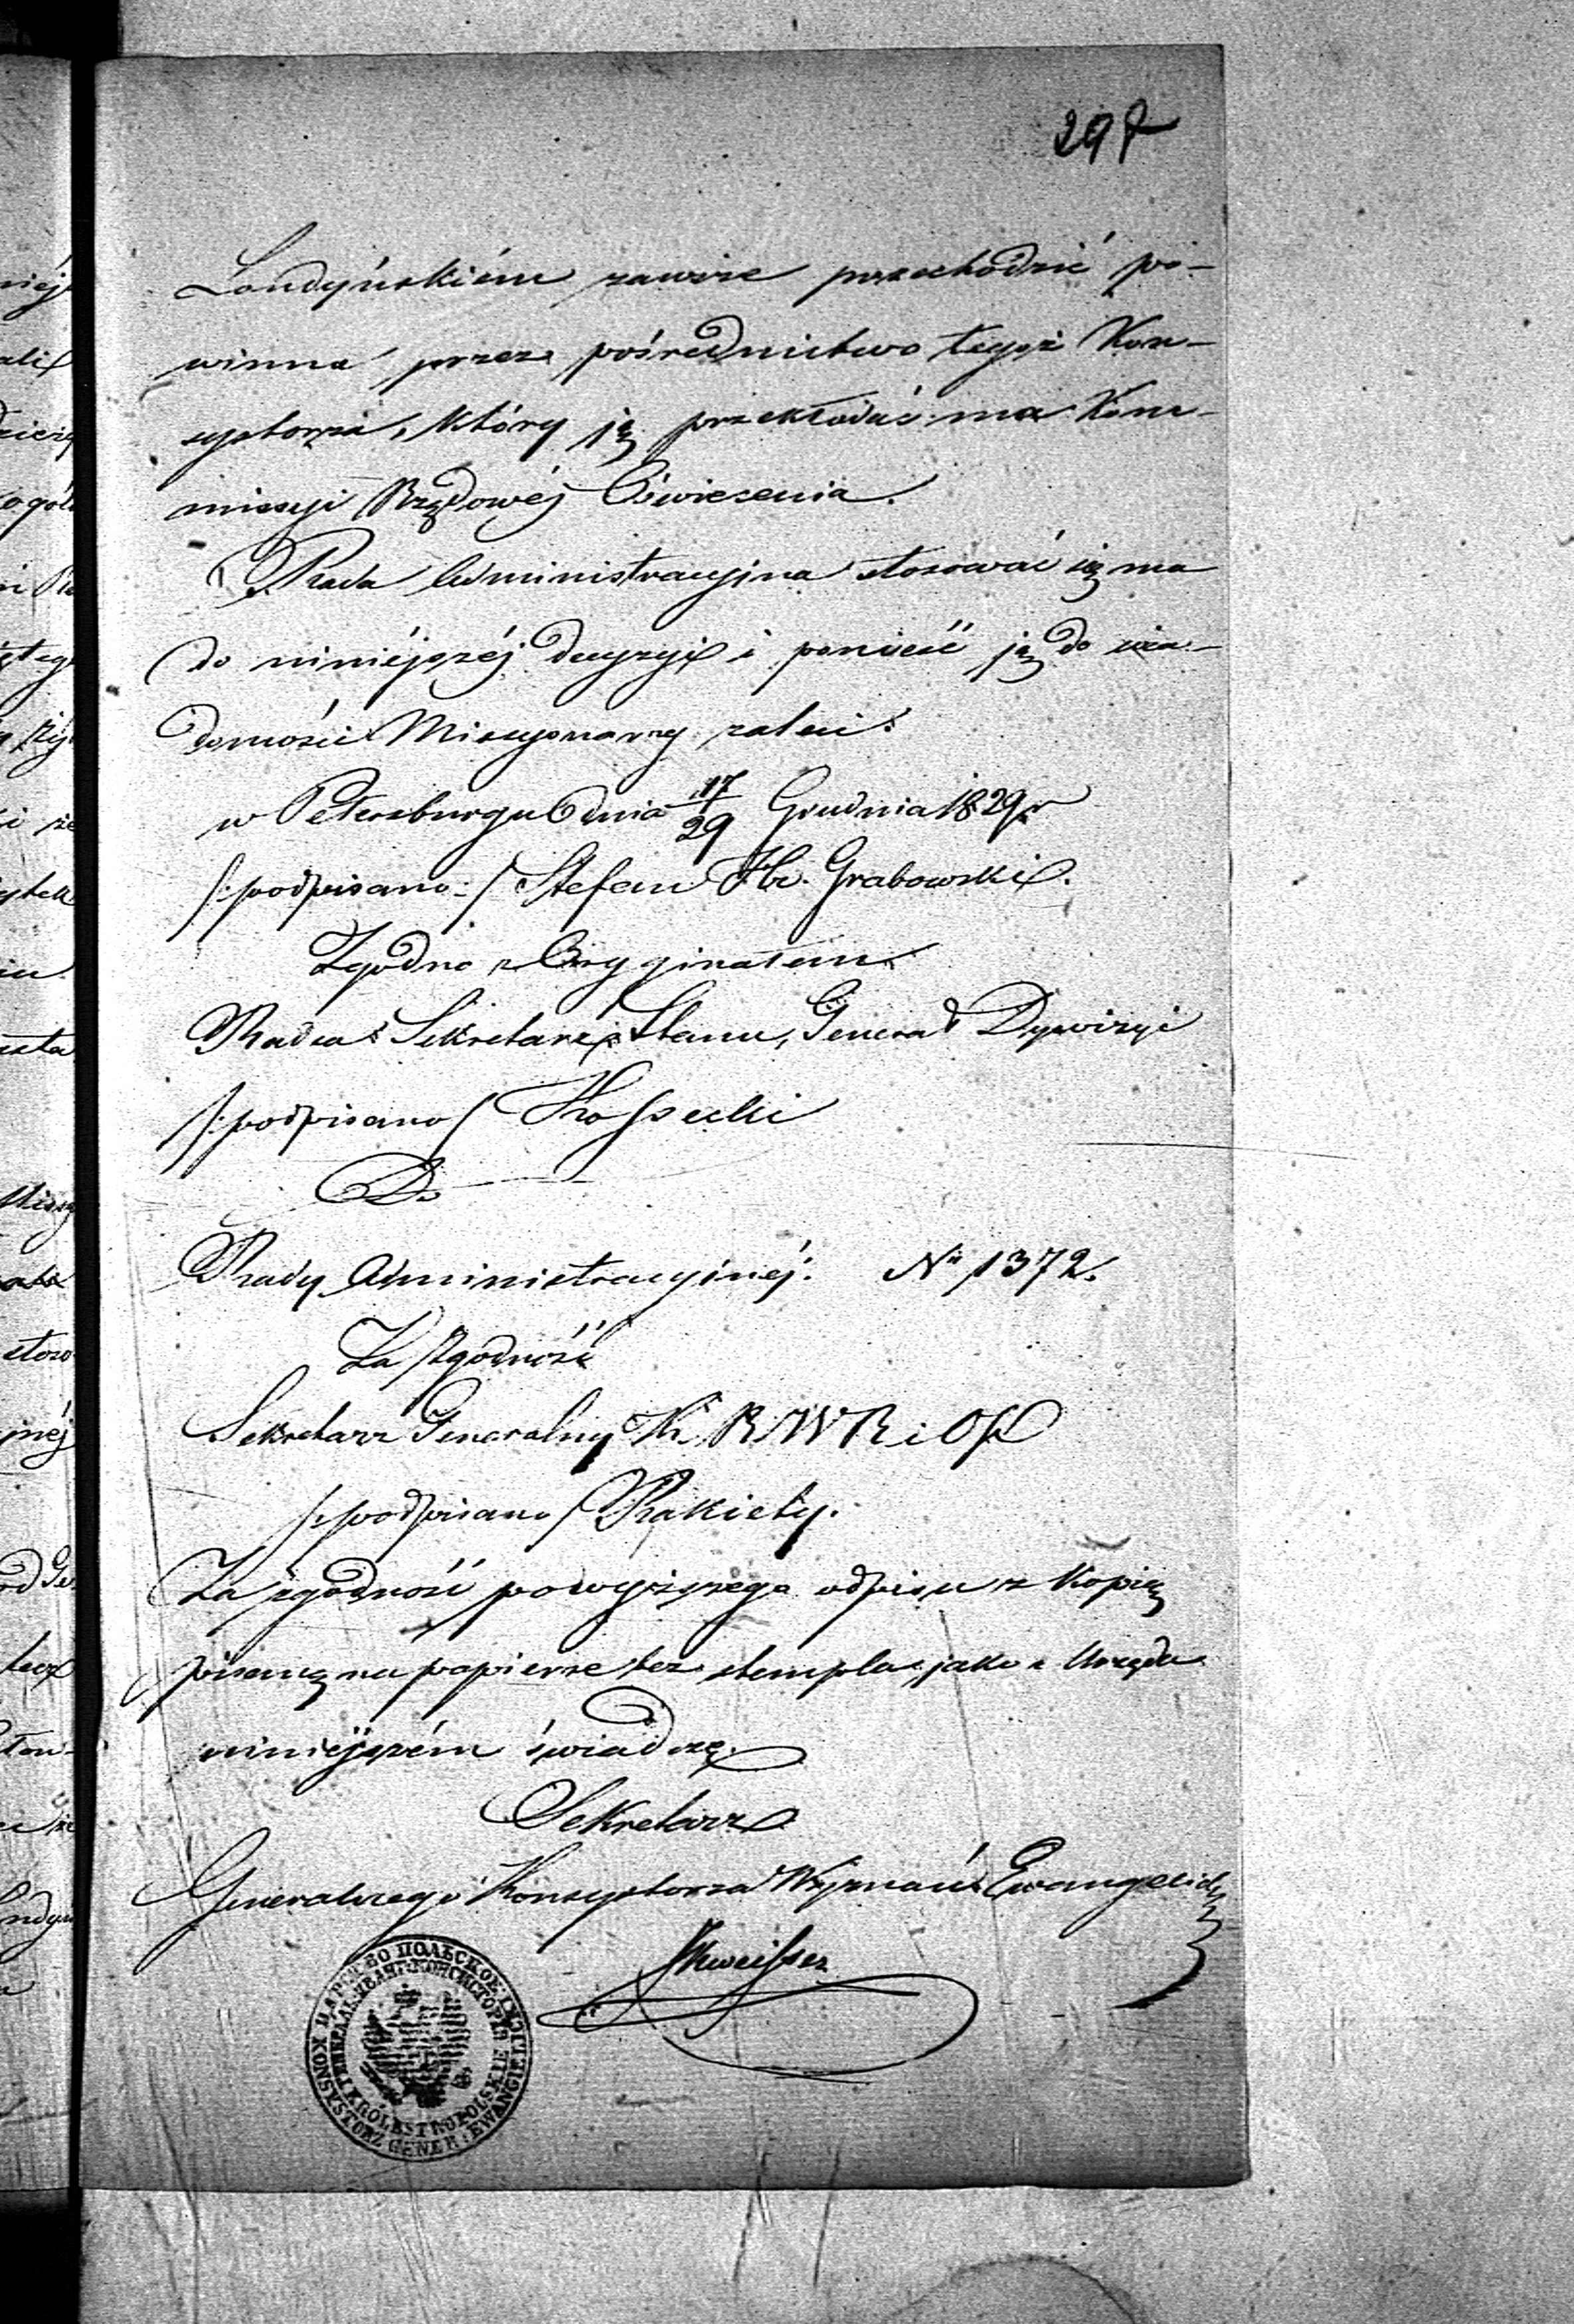 297
Londyńskiém zawsze przechodzić po-
winna przez pośrednictwo tegoż Kon-
systorza, który ją przekładać ma Kom-
missyi Rządowéj Oświecenia.
Rada Administracyjna stosować się ma
do niniéjszéj decyzyi i ponieść ją do wia-
domości Missyonarzy zaleci.
w Petersburgu dnia 17/29 Grudnia 1829 r
/:podpisano:/ Stefan Hr. Grabowski.
Zgodno z Oryginałem
Radca Sekretarz Stanu, Generał Dywizyi
/:podpisano/ Kossecki
Do
Rady Administracyjnéj. No 1372.
Za Zgodność
Sekretarz Generalny K. R. W R i O P
/:podpisano/ Rakiety.
Za zgodność powyższego odpisu z Kopią
pisaną na papierze bez stempla, jako z Urzędu
niniejszém świadczę.
Sekretarz
Generalnego Konsystorza Wyznań Ewangelick
ЦАРСТВО ПОЛЬСКОЕ
ГЕНЕРАЛЬ. ЕВАНГ. КОНСИСТОРІЯ
KRÓLESTWO POLSKIE
KONSYSTORZ GENER: EWANGIELICKI